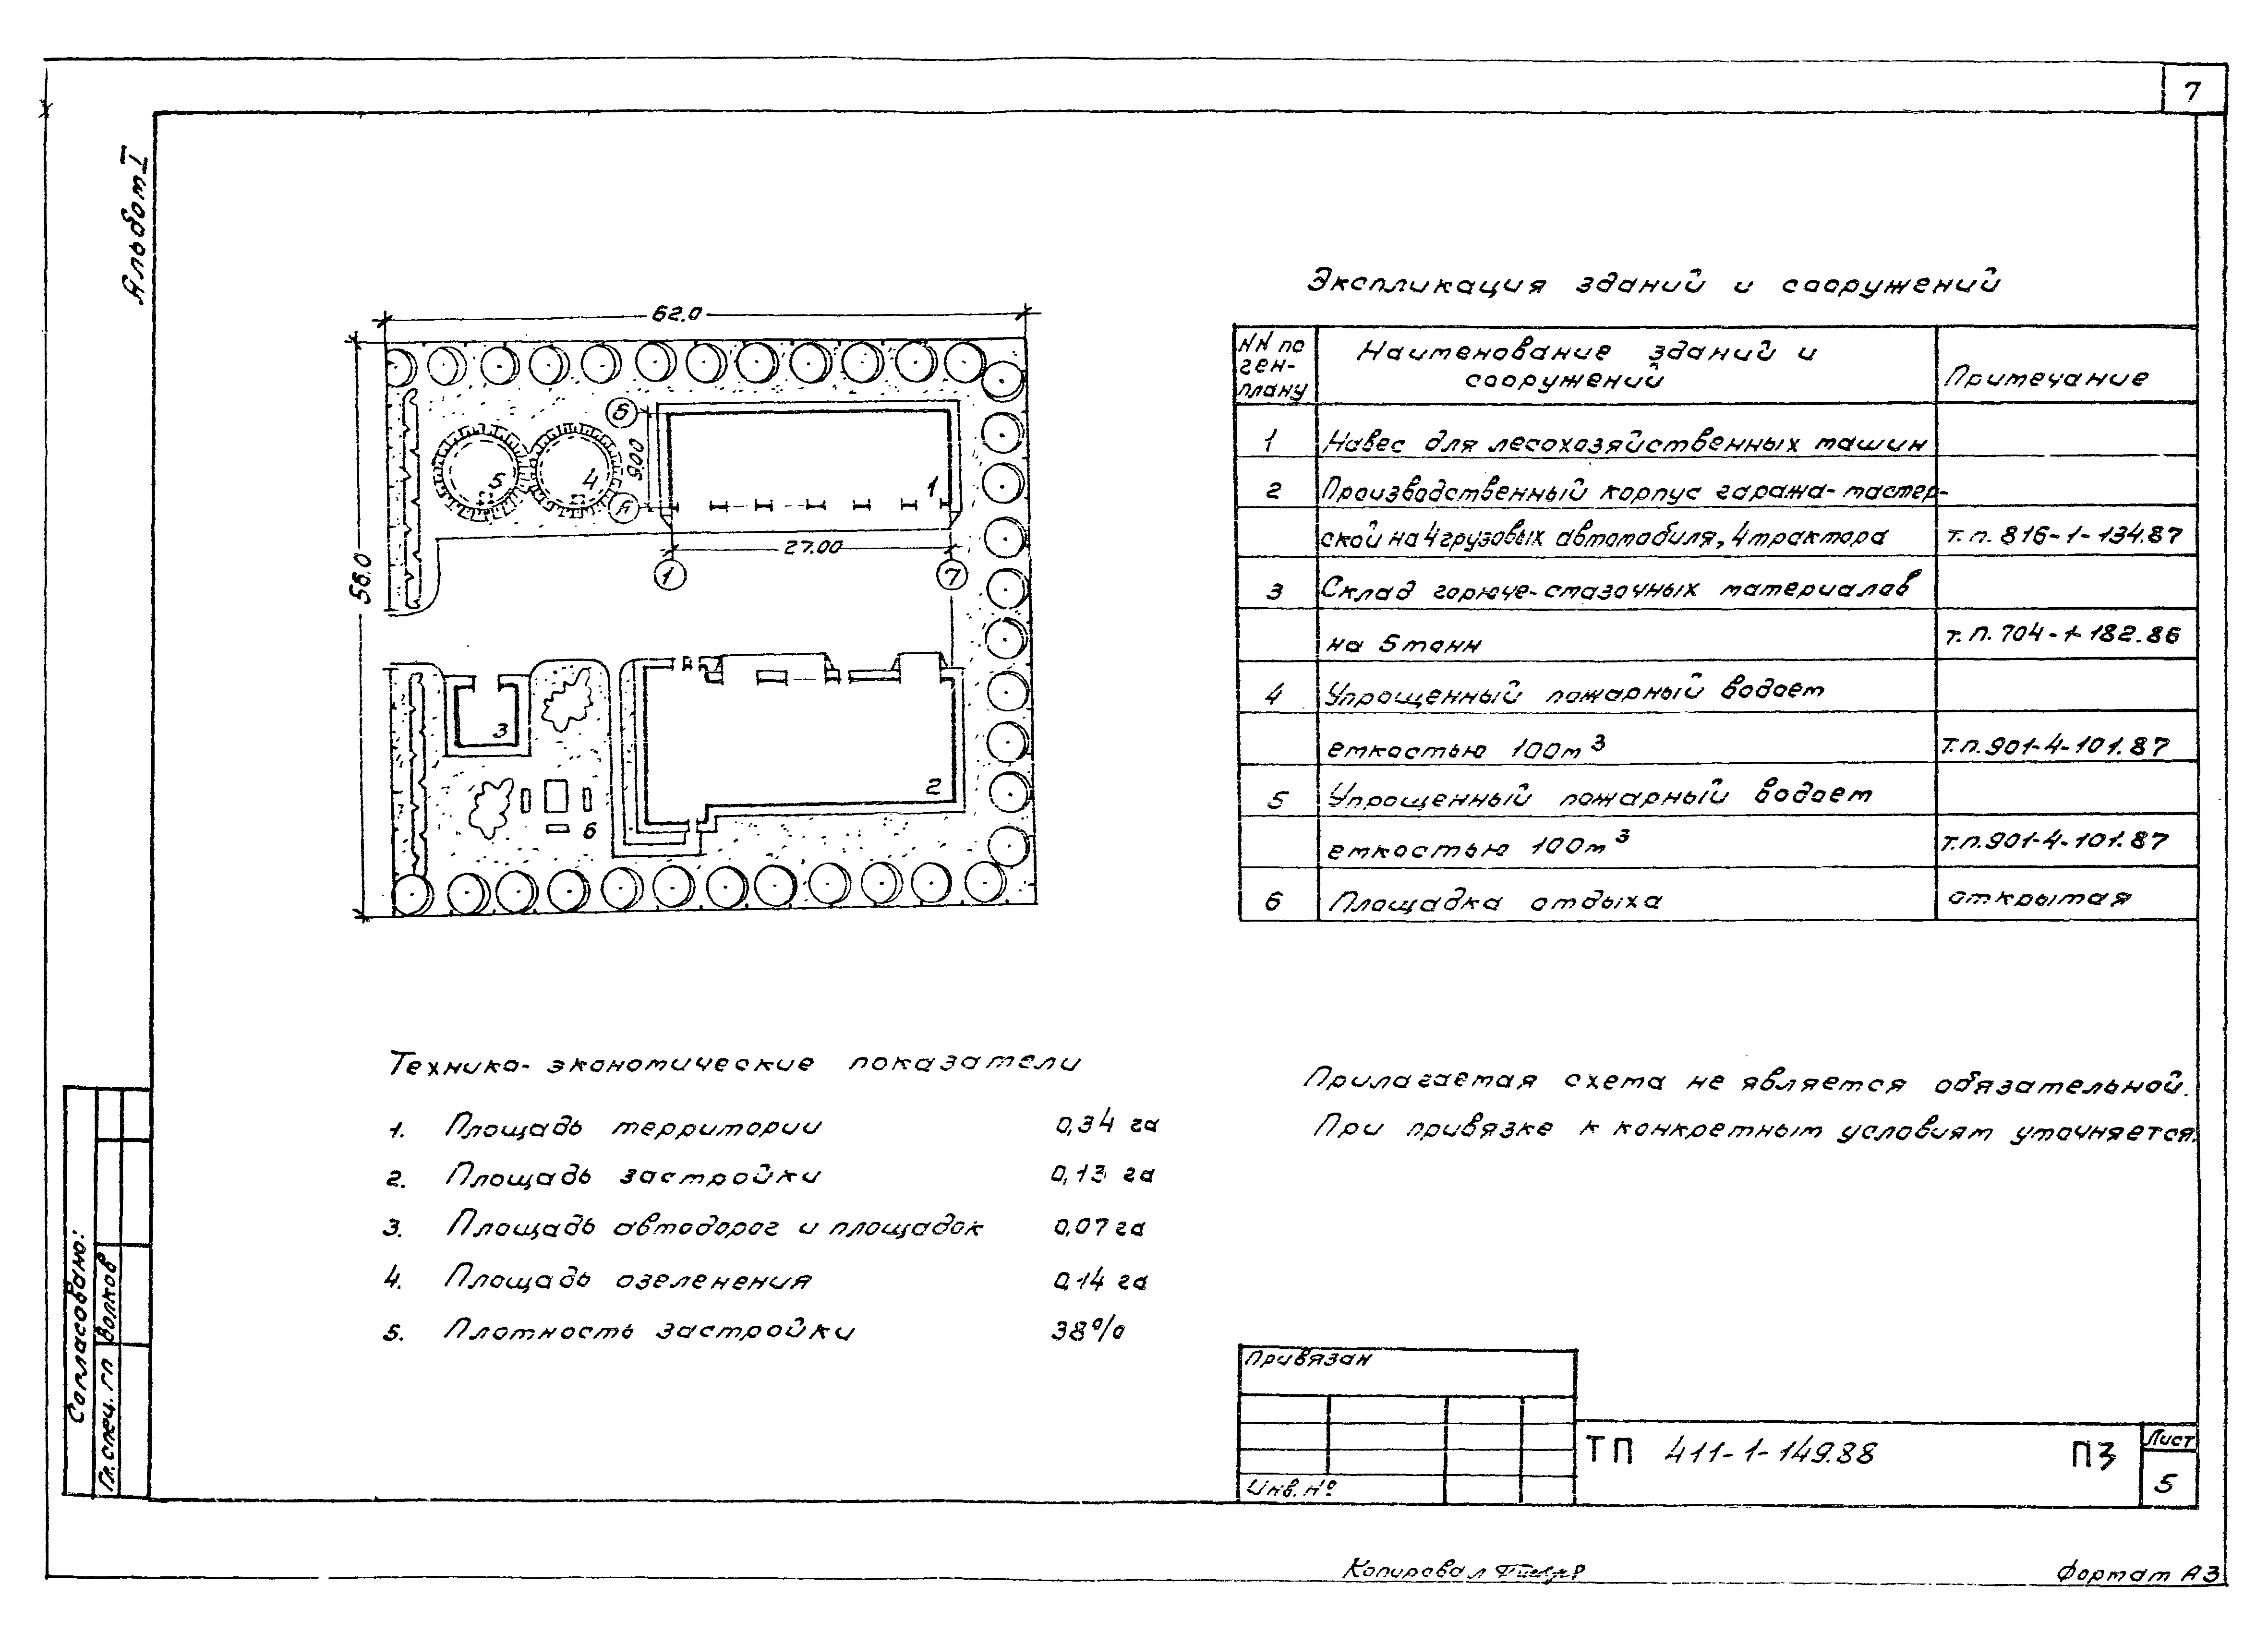 7
Альбом I
62.0
56.0
Б
9.00
А
5
4
1
27.00
1
7
3
2
6
Экспликация зданий и сооружений
NN по ген-плану
Наименование зданий и сооружений
Примечание
1 Навес для лесохозяйственных машин
2 Производственный корпус гаража-мастер-
ской на 4 грузовых автомобиля, 4 трактора т.п. 816-1-134.87
3 Склад горюче-смазочных материалов
на 5 тонн т.п. 704-1-182.86
4 Упрощенный пожарный водоем
емкостью 100м³ т.п. 901-4-101.87
5 Упрощенный пожарный водоем
емкостью 100м³ т.п. 901-4-101.87
6 Площадка отдыха открытая
Технико-экономические показатели
1. Площадь территории 0,34 га
2. Площадь застройки 0,13 га
3. Площадь автодорог и площадок 0,07 га
4. Площадь озеленения 0,14 га
5. Плотность застройки 38%
Прилагаемая схема не является обязательной.
При привязке к конкретным условиям уточняется.
Согласовано:
Гл. спец. ГП Волков
Привязан
Инв. №
ТП 411-1-149.88 ПЗ
Лист
5
Копировал
Формат А3